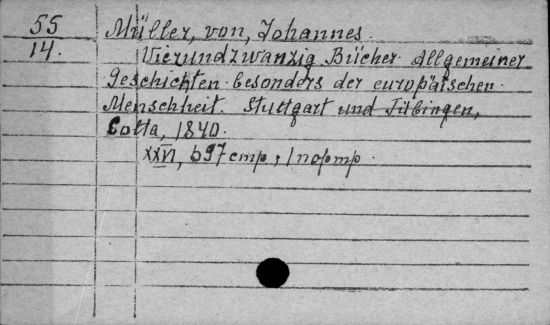 55
14.
Müller, von, Johannes.
Vierundzwanzig Bücher Allgemeiner
Geschichten besonders der europäischen
Menschheit. Stuttgart und Tübingen,
Cotta, 1840.
XXVI, 697 стр., 1 портр.